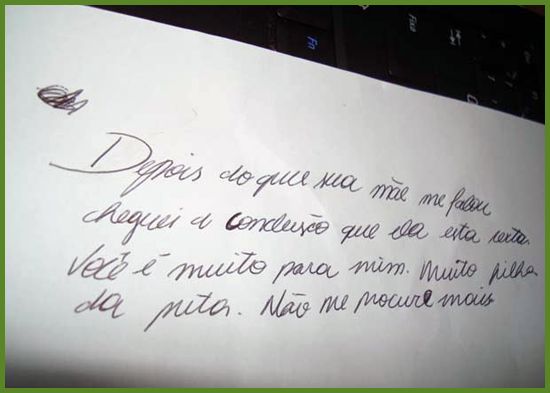 Fn
Depois do que sua mãe me falou
cheguei a conclusão que ela esta certa.
Você é muito para mim. Muito filha
da puta. Não me procure mais